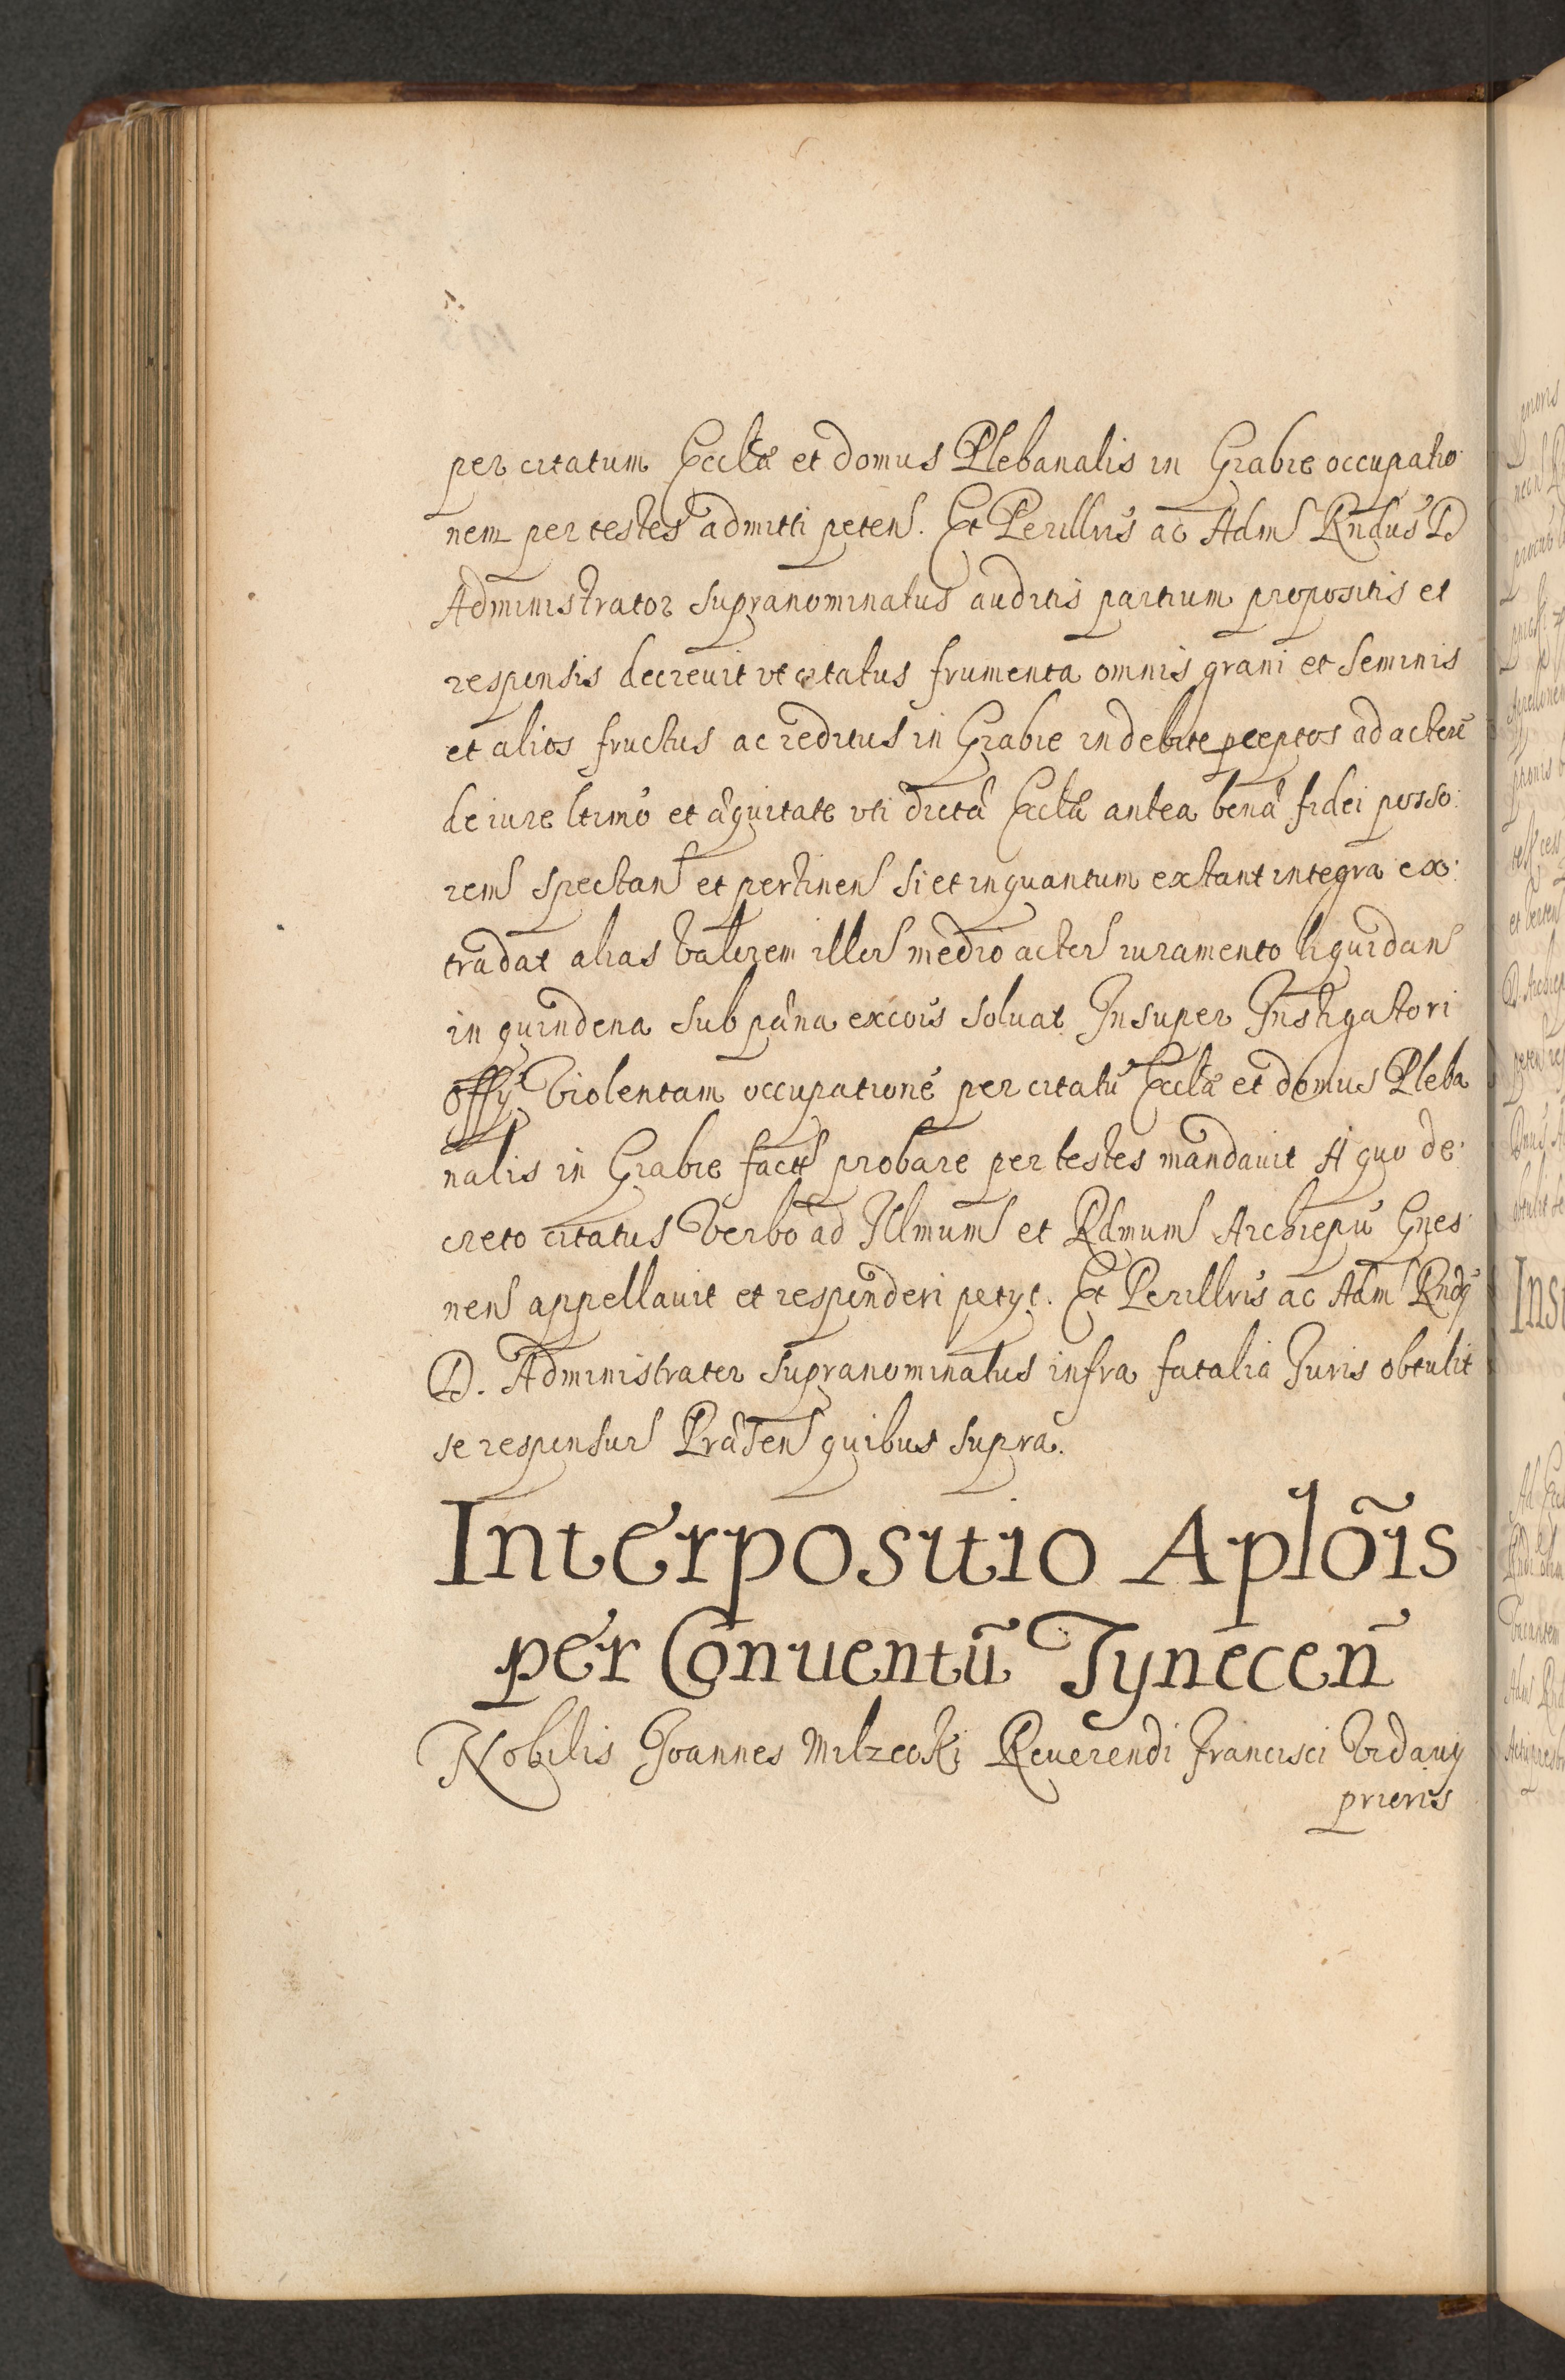 per citatum Eccłæ et domus Plebanalis in Grabie occupatio
nem per testes admitti petens. Et Perillris ac Adm Rndus D
Administrator supranominatus auditis partium propositis et
responsis decreuit vt citatus frumenta omnis grani et seminis
et alios fructus ac reditus in Grabie indebite pceptos ad actorē
de iure ltimo et æquitate vti dictæ Eccłæ antea bonæ fidei posso:
rem spectan et pertinen si et inquantum extant integra ex:
tradat alias valorem illor medio actor iuramento liquidan
in quindena sub pæna excois soluat Insuper Instigatori
offy violentam occupationē per citatū Eccłæ et domus Pleba
nalis in Grabie factā probare per testes mandauit A quo de:
creto citatus verbo ad Illmum et Rdmum Archiepū Gnes:
nen appellauit et responderi petyt. Et Perillris ac Adm Rndq
D. Administrator supranominatus infra fatalia Juris obtulit
se responsur Præsen quibus supra.
Interpositio Aplõis
per Conuentū Tynecen̄
Nobilis Joannes Milzecki Reuerendi Francisci Vidauy
prioris